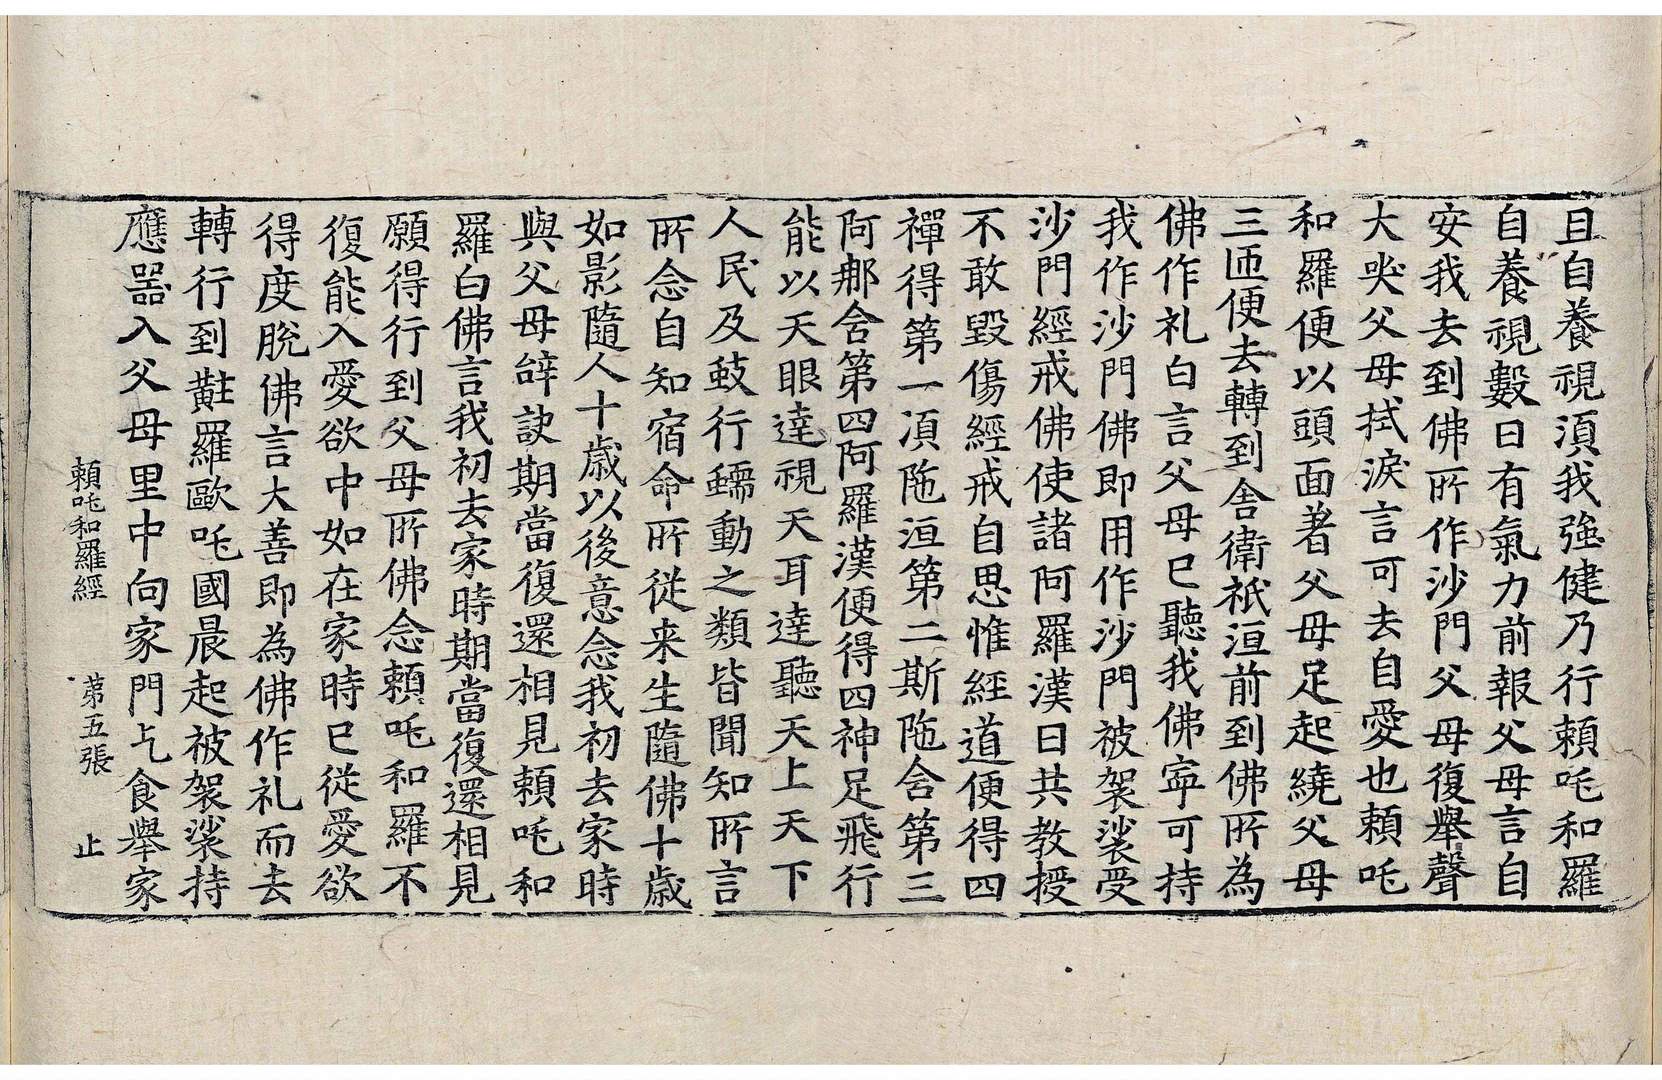 且自養視湏我強健乃行頼吒和羅
自養視數日有氣力前報父母言自
安我去到佛所作沙門父母復舉聲
大哭父母拭淚言可去自愛也頼吒
和羅便以頭面著父母足起繞父母
三匝便去轉到舍衛祇洹前到佛所為
佛作礼白言父母已聽我佛寜可持
我作沙門佛即用作沙門被袈裟受
沙門經戒佛使諸阿羅漢日共教授
不敢毀傷經戒自思惟經道便得四
禪得第一湏陁洹第二斯陁舍第三
阿那舍第四阿羅漢便得四神足飛行
能以天眼達視天耳達聽天上天下
人民及蚑行蠕動之類皆聞知所言
所念自知宿命所從来生隨佛十歲
如影隨人十歲以後意念我初去家時
與父母辝訣期當復還相見頼吒和
羅白佛言我初去家時期當復還相見
願得行到父母所佛念頼吒和羅不
復能入愛欲中如在家時已從愛欲
得度脫佛言大善即為佛作礼而去
轉行到黈羅歐吒國晨起被袈裟持
應器入父母里中向家門乞食舉家
頼吒和羅經　第五張　止